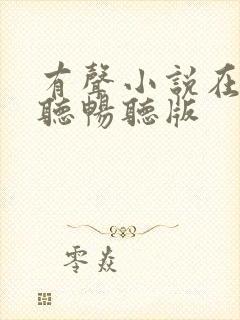 有聲小說在
聽暢聽版
零焱